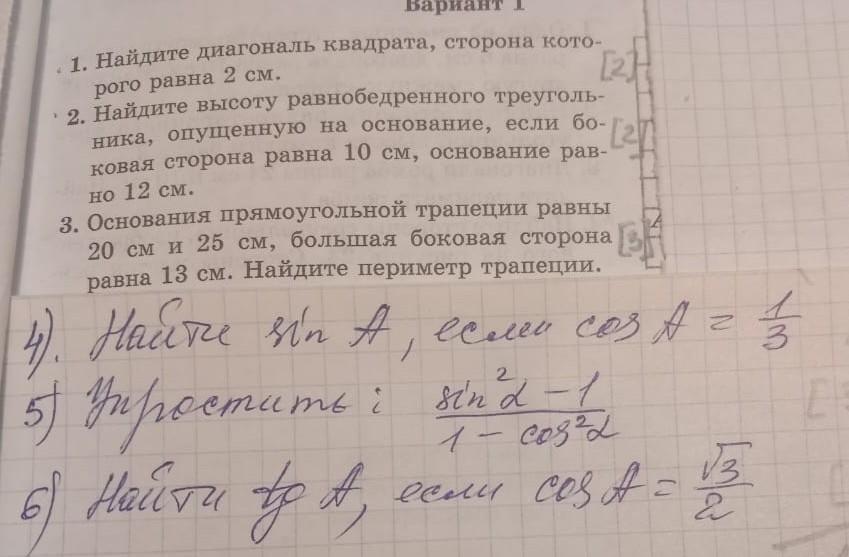 Вариант 1
1. Найдите диагональ квадрата, сторона кото-
рого равна 2 см. [2]
2. Найдите высоту равнобедренного треуголь-
ника, опущенную на основание, если бо- [2]
ковая сторона равна 10 см, основание рав-
но 12 см.
3. Основания прямоугольной трапеции равны
20 см и 25 см, большая боковая сторона [3]
равна 13 см. Найдите периметр трапеции.
4). Найти sin A, если cos A = 1/3
5) Упростить: (sin²α - 1)/(1 - cos²α)
6) Найти tg A, если cos A = √3/2